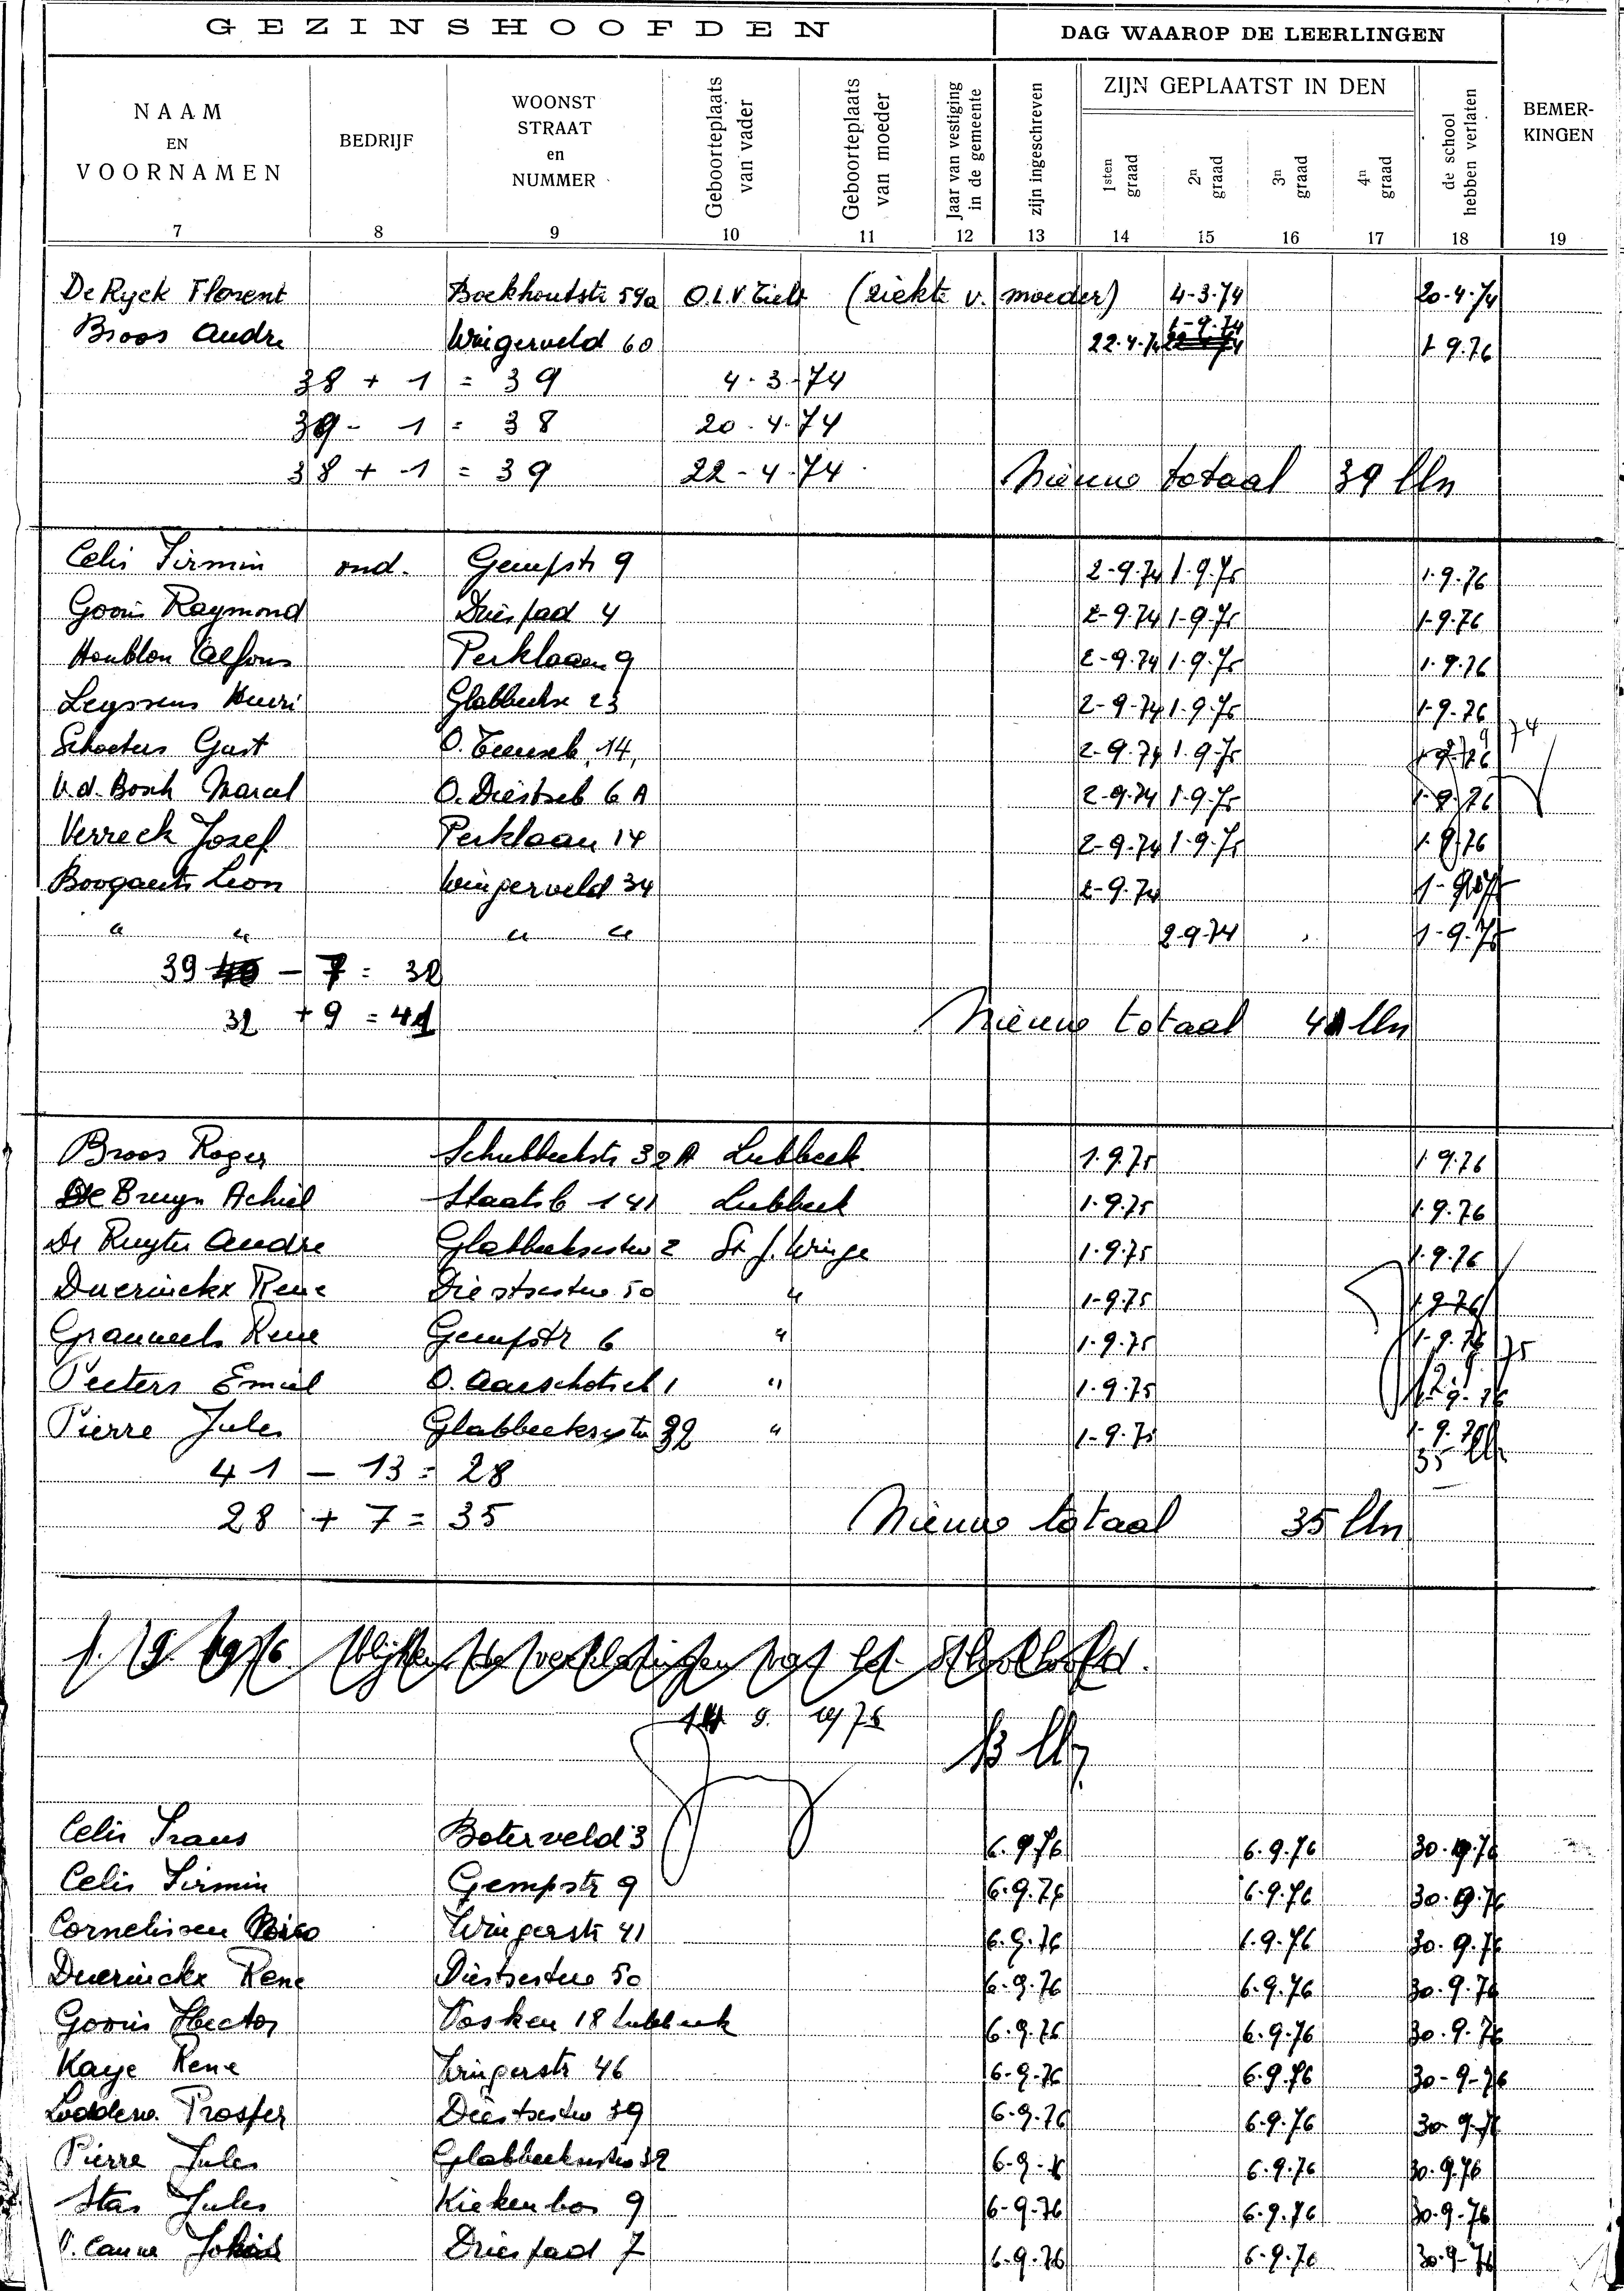 GEZINSHOOFDEN DAG WAAROP DE LEERLINGEN
NAAM EN VOORNAMEN BEDRIJF WOONST STRAAT en NUMMER Geboorteplaats van vader Geboorteplaats van moeder Jaar van vestiging in de gemeente zijn ingeschreven ZIJN GEPLAATST IN DEN 1sten graad 2n graad 3n graad 4n graad de school hebben verlaten BEMER-KINGEN
7 8 9 10 11 12 13 14 15 16 17 18 19
De Ryck Florent Boekhoutstr 59a O.L.V Tielt (ziekte v. moeder) 4-3-74 20-4-74
Broos Andre Wingerveld 60 22.4.74 1-9-74 1 9.76
38 + 1 = 39 4-3-74
39 - 1 = 38 20-4-74
38 + 1 = 39 22-4-74 Nieuw totaal 39 lln
Celis Firmin ond. Gempstr 9 2-9-74 1-9-75 1-9-76
Gooris Raymond Driespad 4 2-9-74 1-9-75 1-9-76
Houblon Alfons Perklaan 9 2-9-74 1-9-75 1-9-76
Leyssens Henri Glabbeekse 23 2-9-74 1-9-75 1-9-76
Schoeters Gust O. Tienseb. 14 2-9-74 1-9-75 74
V.d. Bosch Marcel O. Diestseb 6 A 2-9-74 1-9-75 1-9-76
Verreck Jozef Perklaan 14 2-9-74 1-9-75 1-9-76
Boogaerts Leon Wingerveld 34 2-9-74
" " " " 2-9-74 1-9-75
39 - 7 = 32
32 + 9 = 41 Nieuw totaal 41 lln
Broos Roger Schubbeekstr 32A Lubbeek 1.9.75 1.9.76
De Bruyn Achiel Staatsb 141 Lubbeek 1-9-75 1.9.76
De Ruyter Andre Glabbeeksestw 2 St. J. Winge 1-9-75 1.9.76
Duerinckx Rene Diestsestw 50 " 1-9-75 1.9.76
Grauwels Rene Gempstr 6 " 1-9-75 1-9-76 75
Peeters Emiel O. Aarschotseb 1 " 1-9-75 1-9-76
Pierre Jules Glabbeeksestw 32 " 1-9-75 1-9-76
41 - 13 = 28 35 lln
28 + 7 = 35 Nieuw totaal 35 lln
1. 9. 1976 blijkens de verklaringen van het Schoolhoofd.
9. 1976
13 lln
Celis Frans Boterveld 3 6-9-76 6-9-76 30-9-76
Celis Firmin Gempstr 9 6-9-76 6-9-76 30-9-76
Cornelissen Wingerstr 41 6-9-76 6-9-76 30-9-76
Duerinckx Rene Diestsestw 50 6-9-76 6-9-76 30-9-76
Gooris Hector Vosken 18 Lubbeek 6-9-76 6-9-76 30-9-76
Kaye Rene Wingerstr 46 6-9-76 6-9-76 30-9-76
Prosper Diestsestw 39 6-9-76 6-9-76 30-9-76
Pierre Jules Glabbeeksestw 32 6-9-76 6-9-76 30-9-76
Stas Jules Kiekenbos 9 6-9-76 6-9-76 30-9-76
V. Canne Driespad 7 6-9-76 6-9-76 30-9-76